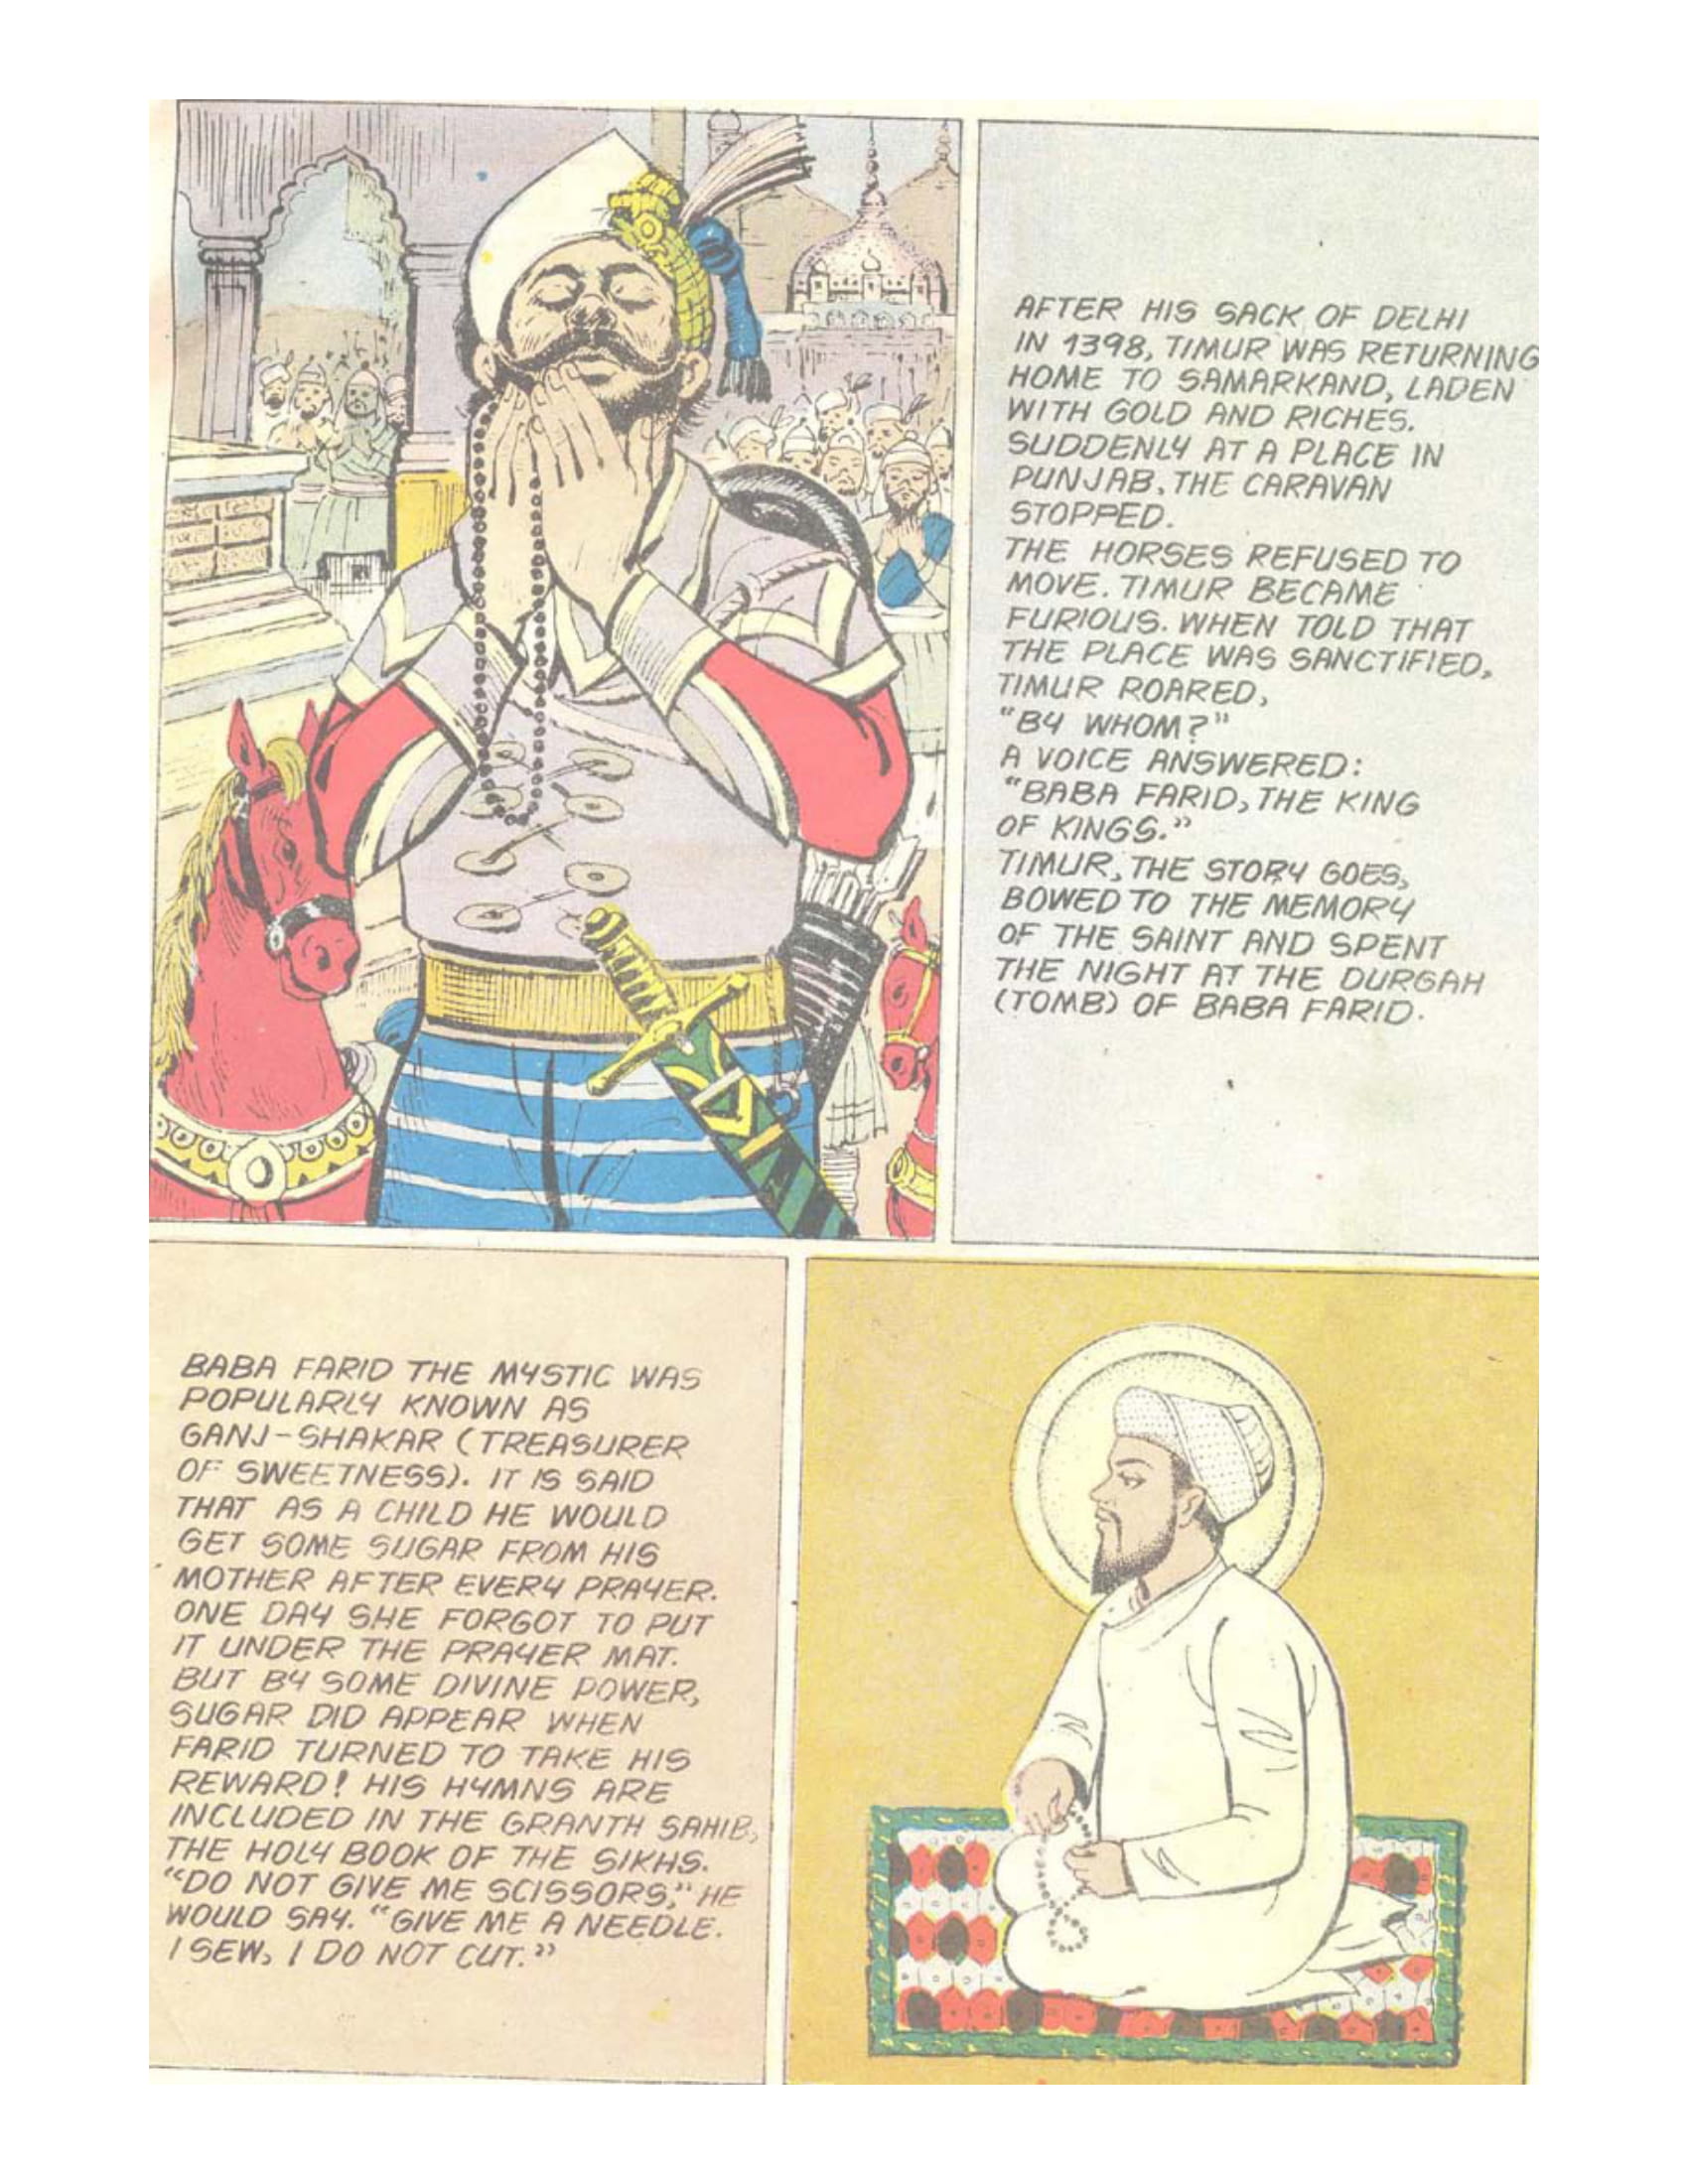 AFTER HIS SACK OF DELHI
IN 1398, TIMUR WAS RETURNING
HOME TO SAMARKAND, LADEN
WITH GOLD AND RICHES.
SUDDENLY AT A PLACE IN
PUNJAB, THE CARAVAN
STOPPED.
THE HORSES REFUSED TO
MOVE. TIMUR BECAME
FURIOUS. WHEN TOLD THAT
THE PLACE WAS SANCTIFIED,
TIMUR ROARED,
"BY WHOM?"
A VOICE ANSWERED:
"BABA FARID, THE KING
OF KINGS."
TIMUR, THE STORY GOES,
BOWED TO THE MEMORY
OF THE SAINT AND SPENT
THE NIGHT AT THE DURGAH
(TOMB) OF BABA FARID.
BABA FARID THE MYSTIC WAS
POPULARLY KNOWN AS
GANJ-SHAKAR (TREASURER
OF SWEETNESS). IT IS SAID
THAT AS A CHILD HE WOULD
GET SOME SUGAR FROM HIS
MOTHER AFTER EVERY PRAYER.
ONE DAY SHE FORGOT TO PUT
IT UNDER THE PRAYER MAT.
BUT BY SOME DIVINE POWER,
SUGAR DID APPEAR WHEN
FARID TURNED TO TAKE HIS
REWARD! HIS HYMNS ARE
INCLUDED IN THE GRANTH SAHIB,
THE HOLY BOOK OF THE SIKHS.
"DO NOT GIVE ME SCISSORS," HE
WOULD SAY. "GIVE ME A NEEDLE.
I SEW, I DO NOT CUT."